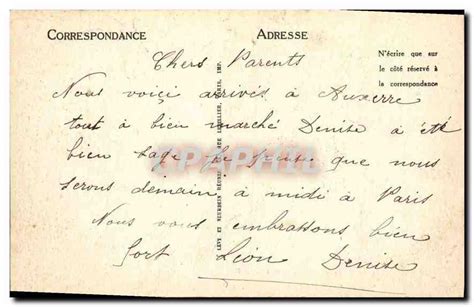 CORRESPONDANCE ADRESSE
N'écrire que sur
le côté réservé à
la correspondance
Chers Parents
Nous voici arrivés à Auxerre
tout à bien marché Denise à été
bien sage je pense que nous
serons demain à midi à Paris
Nous vous embrassons bien
fort Lion Denise
LÉVY ET NEURDEIN RÉUNIS IMP.
CPAPHIL